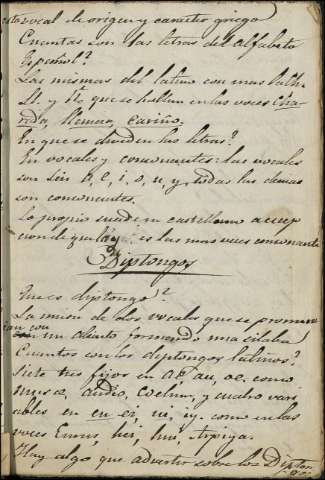 vocal de origen y caracter griego
Cuentas son las letras del alfabeto
Español?
Las mismas del latino con mas la Ch.
Ll. y Ñ. que se hallan en las voces Cha-
rida, llamas, cariño.
En que se dividen las letras?
En vocales y consonantes: las vocales
son seis a, e, i, o, u, y, todas las demas
son consonantes.
Lo propio sucede en castellano a excep
cion de que la y es las mas veces consonante
Diptongos
Que es diptongo?
La union de dos vocales que se pronun
cian con un aliento formando una silaba
Cuantos son los diptongos latinos?
Siete tres fijos en ae, au, oe. como
musæ, audio, coelum, y cuatro vari
ables en eu, ei, ui, yi. como en las
voces Eurus, hei, hui, Arpyia.
Hay algo que advertir sobre los Dipton
gos